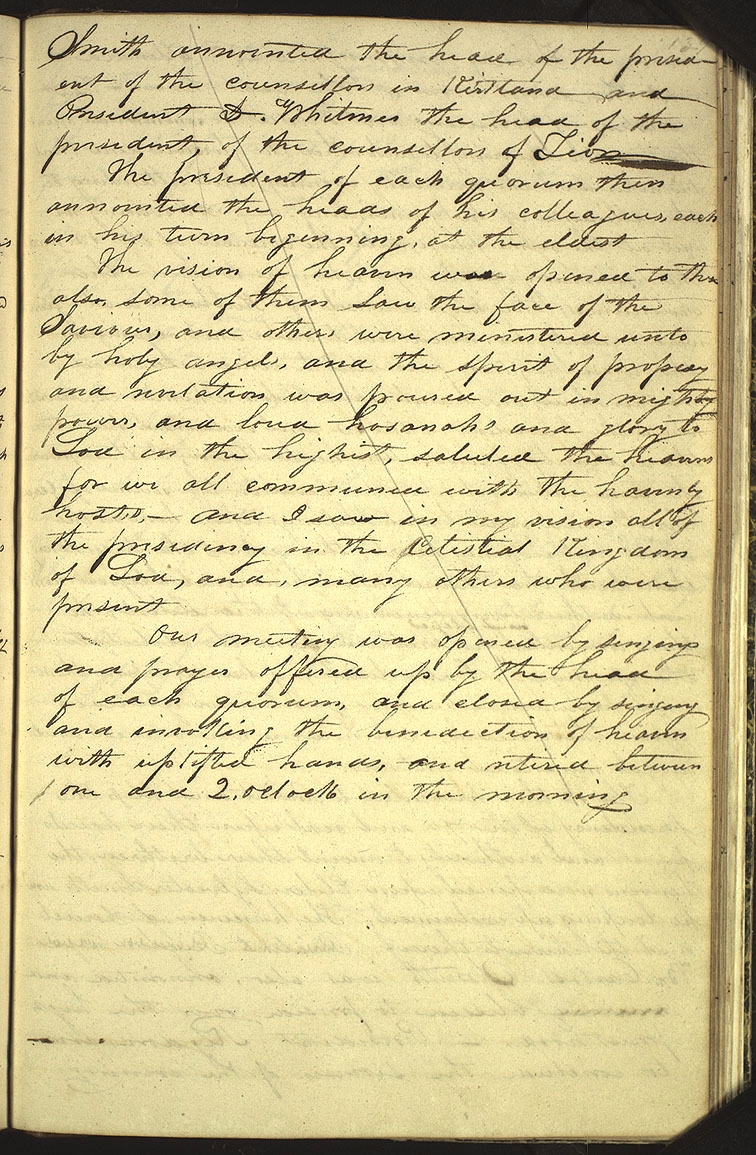 Smith annointed the head of the presid-
ent of the counsellors in Kirtland and
President D. Whitmer the head of the
president, of the counsellors of Zion
The president of each quorum then
annointed the heads of his colleagues, each
in his turn beginning, at the eldest
The vision of heaven was opened to these
also, some of them saw the face of the
Saviour, and others were ministered unto
by holy angels, and the spirit of propesey
and revelation was poured out in mighty
power, and loud hosanahs and glory to
God in the highest, saluted the heavens
for we all communed with the heavenly
hosts,– and I saw in my vision all of
the presidency in the Celestial Kingdom
of God, and, many others who were
present
Our meeting was opened by singing
and prayer offered up by the head
of each quorum, and closed by singing
and invoking the benediction of heaven
with uplifted hands, and retired between
one and 2, oclock in the morning